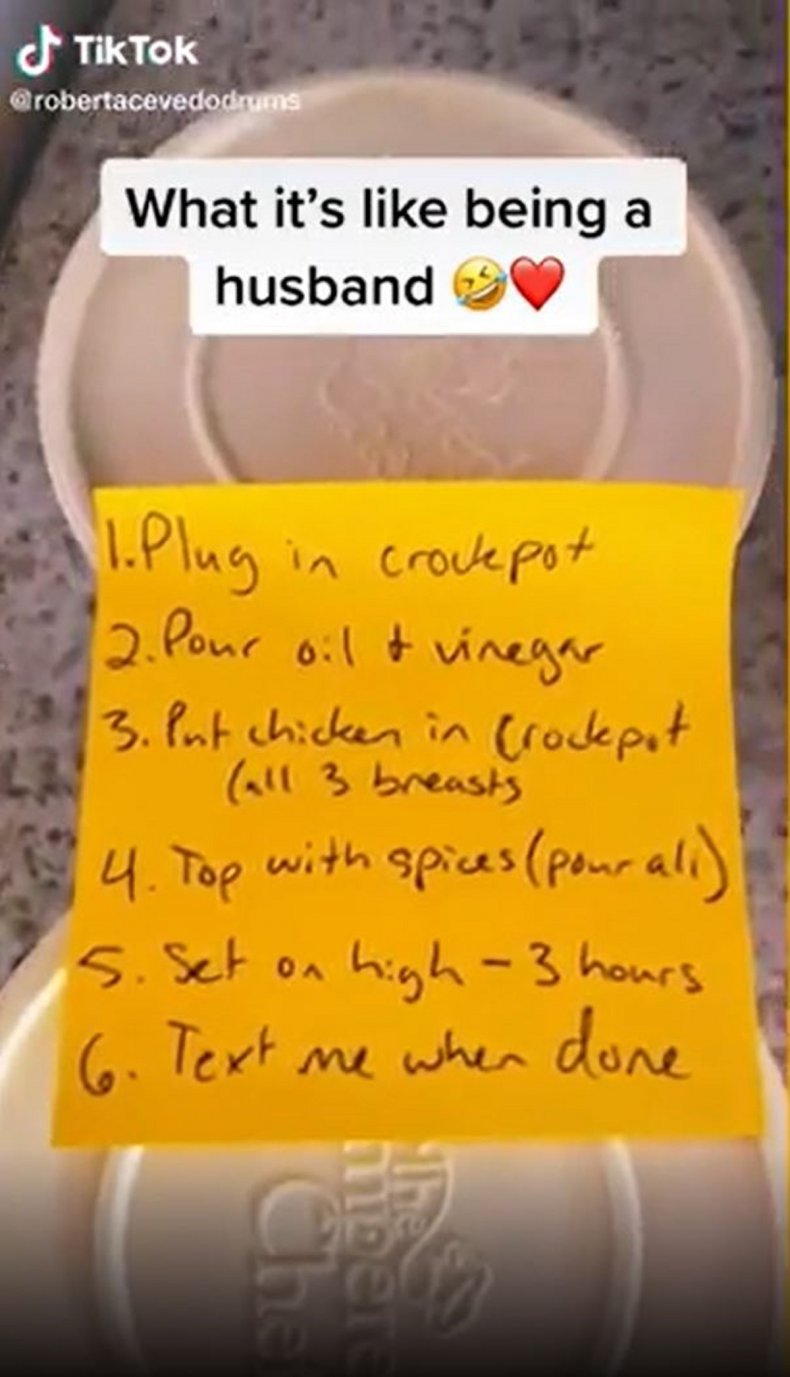 TikTok
@robertacevedodrums
What it's like being a
husband 🤣❤️
1. Plug in crockpot
2. Pour oil & vinegar
3. Put chicken in Crockpot
(all 3 breasts
4. Top with spices (pour all)
5. Set on high - 3 hours
6. Text me when done
The
Pampered
Chef